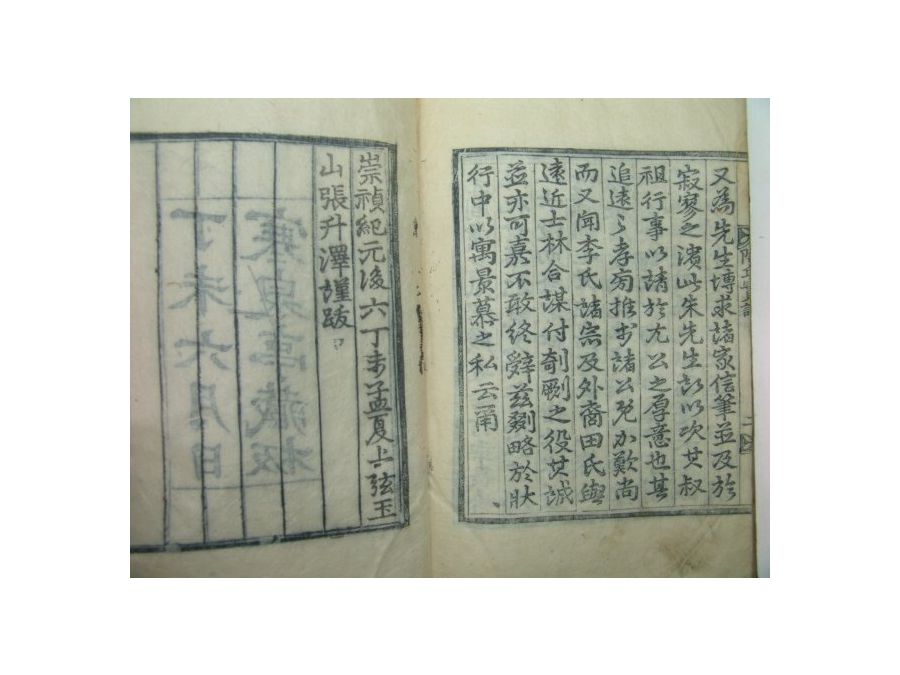 又為先生博求諸家信筆並及於
寂寥之濱此朱先生所以次其叔
祖行事以請於尤公之厚意也其
追遠之孝旁推於諸公既加歎尚
而又聞李氏諸宗及外裔田氏與
遠近士林合謀付剞劂之役其誠
並亦可嘉不敢終辭玆剟略於狀
行中以寓景慕之私云爾
崇禎紀元後六丁未孟夏上弦玉
山張升澤謹跋
寒泉亭藏板
丁未六月日